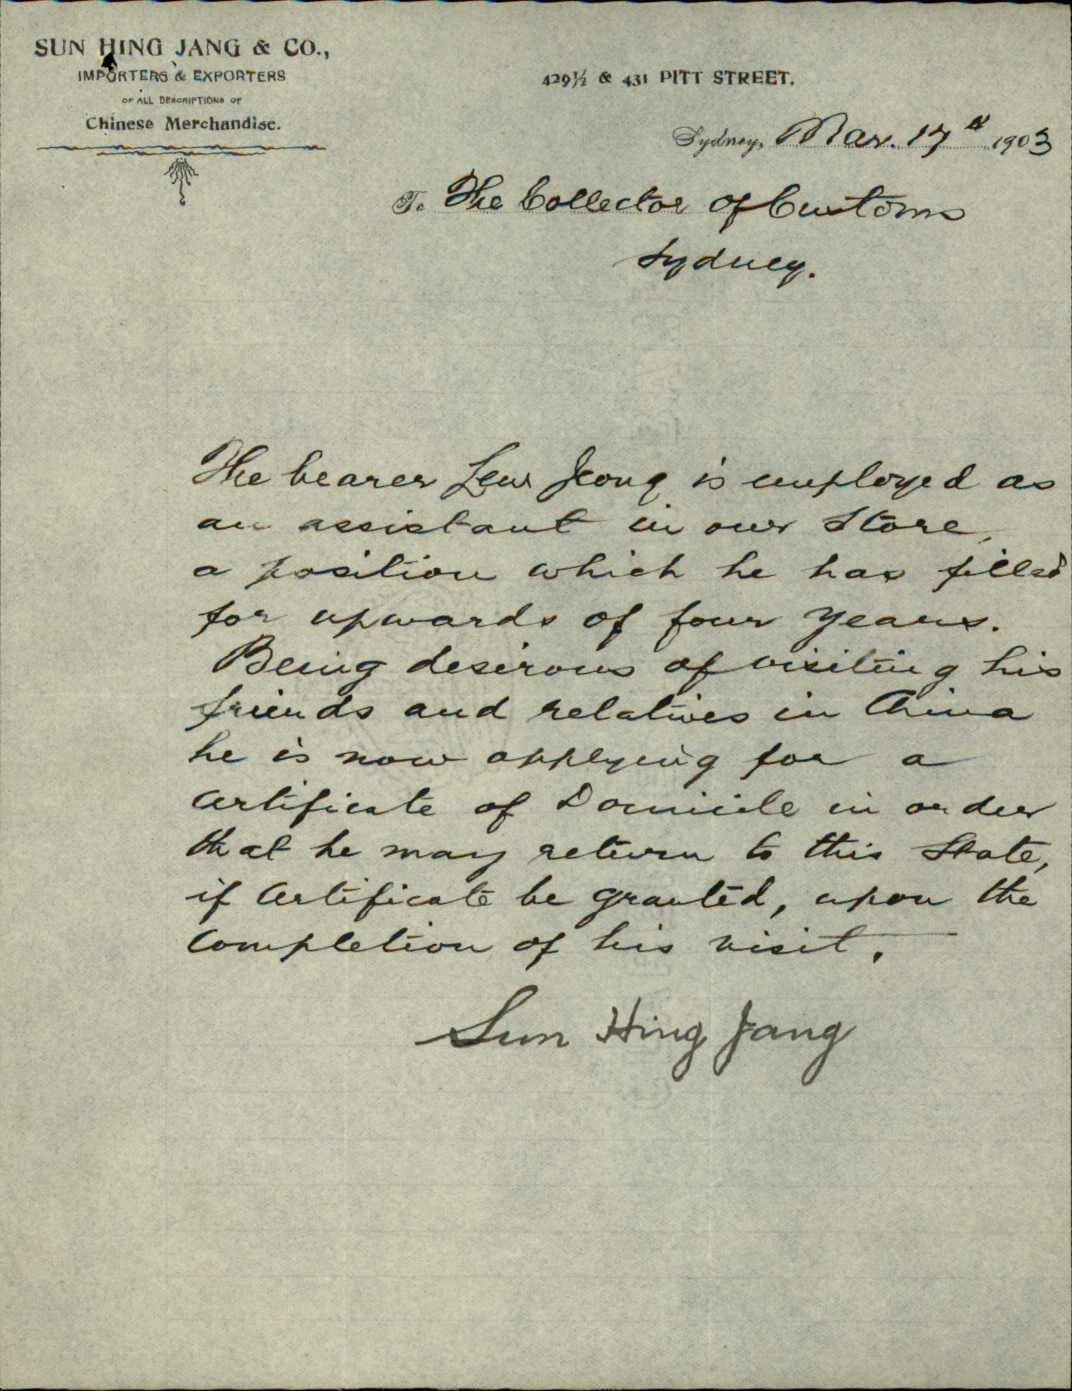 SUN HING JANG & CO.,
IMPORTERS & EXPORTERS
OF ALL DESCRIPTIONS OF
Chinese Merchandise.
429½ & 431 PITT STREET.
Sydney, Mar. 17th 1903
To The Collector of Customs
Sydney.
The bearer Lew Jeong is employed as
an assistant in our Store,
a position which he has filled
for upwards of four years.
Being desirous of visiting his
friends and relatives in China
he is now applying for a
Certificate of Domicile in order
that he may return to this State,
if Certificate be granted, upon the
Completion of his visit.
Sun Hing Jang